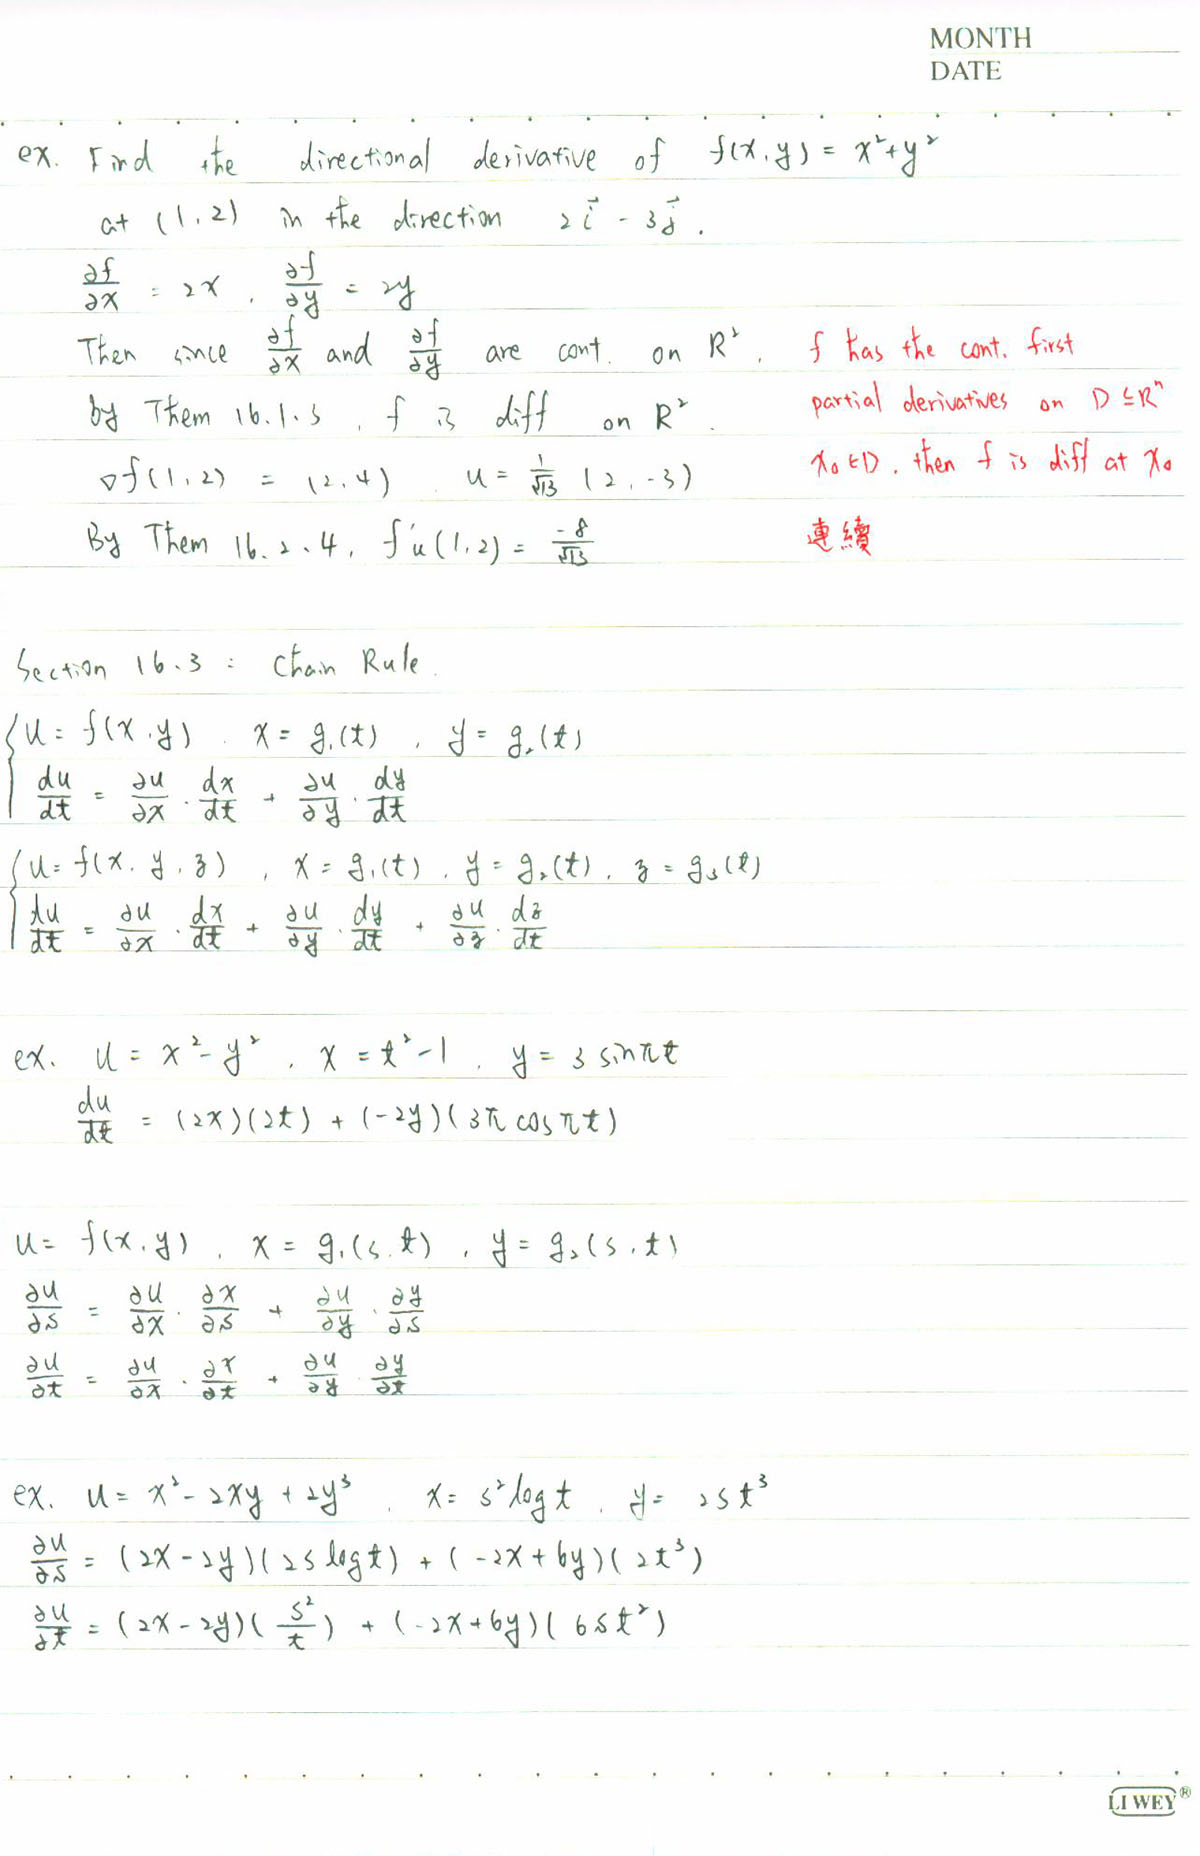 MONTH
DATE
ex. Find the directional derivative of f(x,y) = x²+y²
at (1,2) in the direction 2i⃗ - 3j⃗.
∂f/∂x = 2x, ∂f/∂y = 2y
Then since ∂f/∂x and ∂f/∂y are cont. on R²,
by Them 16.1.3, f is diff on R².
∇f(1,2) = (2,4) u = 1/√13 (2,-3)
By Them 16.2.4, f'u(1,2) = -8/√13
f has the cont. first
partial derivatives on D⊆Rⁿ
x₀∈D, then f is diff at x₀
連續
Section 16.3 : Chain Rule.
u = f(x,y), x = g₁(t), y = g₂(t)
du/dt = ∂u/∂x · dx/dt + ∂u/∂y · dy/dt
u = f(x,y,z), x = g₁(t), y = g₂(t), z = g₃(t)
du/dt = ∂u/∂x · dx/dt + ∂u/∂y · dy/dt + ∂u/∂z · dz/dt
ex. u = x²-y², x = t²-1, y = 3 sinπt
du/dt = (2x)(2t) + (-2y)(3π cosπt)
u = f(x,y), x = g₁(s,t), y = g₂(s,t)
∂u/∂s = ∂u/∂x · ∂x/∂s + ∂u/∂y · ∂y/∂s
∂u/∂t = ∂u/∂x · ∂x/∂t + ∂u/∂y · ∂y/∂t
ex. u = x²-2xy+2y³, x = s²logt, y = 2st³
∂u/∂s = (2x-2y)(2s logt) + (-2x+6y)(2t³)
∂u/∂t = (2x-2y)(s²/t) + (-2x+6y)(6st²)
LI WEY®